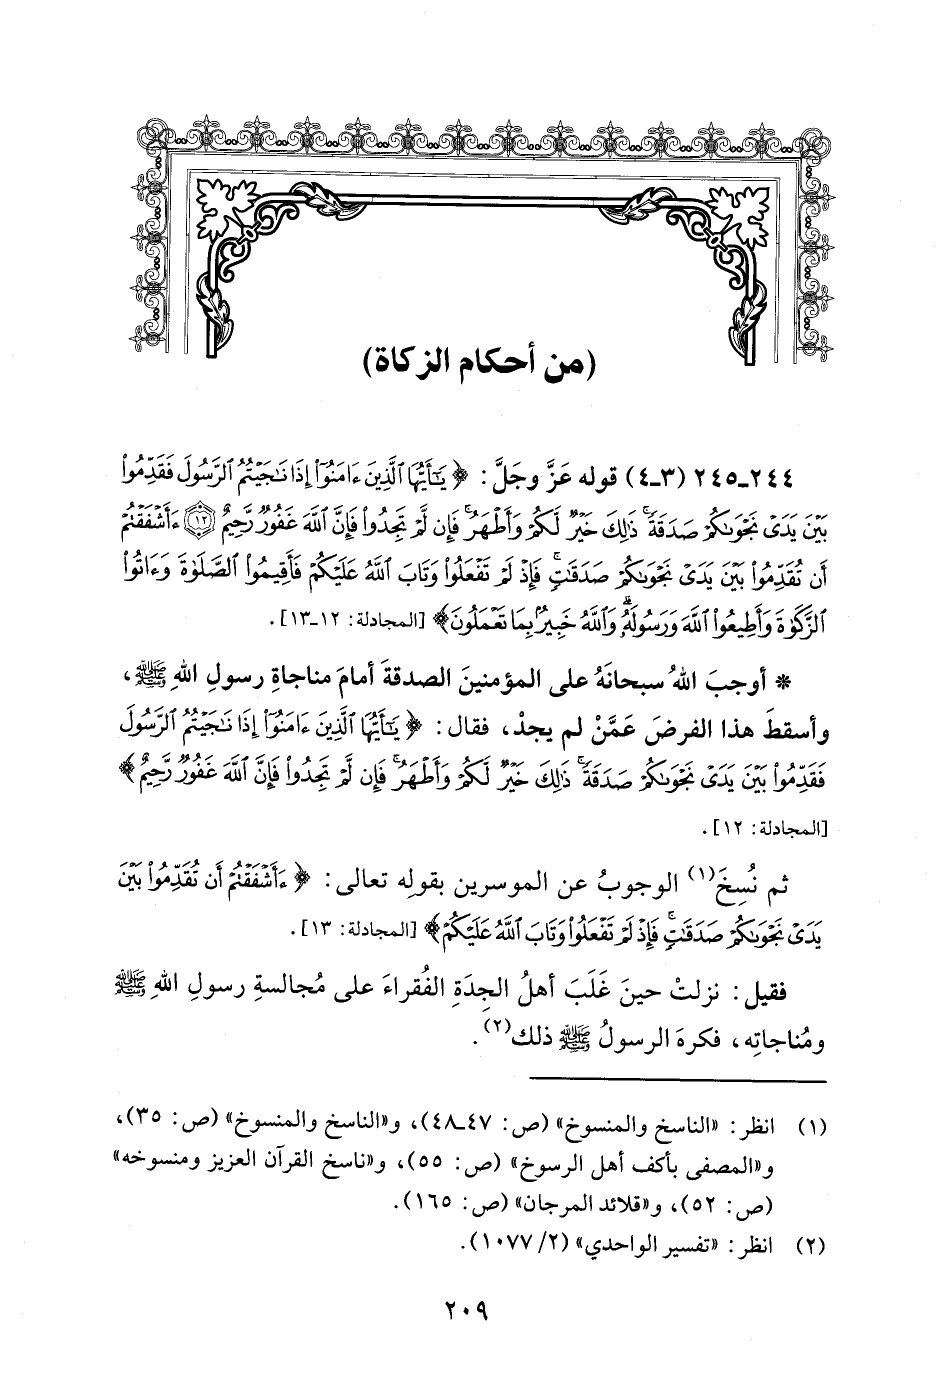 (من أحكام الزكاة)
٢٤٤ـ٢٤٥ (٣ـ٤) قوله عَزَّ وجَلَّ: ﴿يَٰٓأَيُّهَا ٱلَّذِينَ ءَامَنُوٓا۟ إِذَا نَٰجَيْتُمُ ٱلرَّسُولَ فَقَدِّمُوا۟
بَيْنَ يَدَىْ نَجْوَىٰكُمْ صَدَقَةً ۚ ذَٰلِكَ خَيْرٌ لَّكُمْ وَأَطْهَرُ ۚ فَإِن لَّمْ تَجِدُوا۟ فَإِنَّ ٱللَّهَ غَفُورٌ رَّحِيمٌ ۝١٢ ءَأَشْفَقْتُمْ
أَن تُقَدِّمُوا۟ بَيْنَ يَدَىْ نَجْوَىٰكُمْ صَدَقَٰتٍ ۚ فَإِذْ لَمْ تَفْعَلُوا۟ وَتَابَ ٱللَّهُ عَلَيْكُمْ فَأَقِيمُوا۟ ٱلصَّلَوٰةَ وَءَاتُوا۟
ٱلزَّكَوٰةَ وَأَطِيعُوا۟ ٱللَّهَ وَرَسُولَهُۥ ۚ وَٱللَّهُ خَبِيرٌۢ بِمَا تَعْمَلُونَ﴾ [المجادلة: ١٢ـ١٣].
* أوجبَ اللهُ سبحانَهُ على المؤمنينَ الصدقةَ أمامَ مناجاةِ رسولِ اللهِ ﷺ،
وأسقطَ هذا الفرضَ عَمَّنْ لم يجدْ، فقال: ﴿يَٰٓأَيُّهَا ٱلَّذِينَ ءَامَنُوٓا۟ إِذَا نَٰجَيْتُمُ ٱلرَّسُولَ
فَقَدِّمُوا۟ بَيْنَ يَدَىْ نَجْوَىٰكُمْ صَدَقَةً ۚ ذَٰلِكَ خَيْرٌ لَّكُمْ وَأَطْهَرُ ۚ فَإِن لَّمْ تَجِدُوا۟ فَإِنَّ ٱللَّهَ غَفُورٌ رَّحِيمٌ﴾
[المجادلة: ١٢].
ثم نُسِخَ(١) الوجوبُ عن الموسرين بقولِه تعالى: ﴿ءَأَشْفَقْتُمْ أَن تُقَدِّمُوا۟ بَيْنَ
يَدَىْ نَجْوَىٰكُمْ صَدَقَٰتٍ ۚ فَإِذْ لَمْ تَفْعَلُوا۟ وَتَابَ ٱللَّهُ عَلَيْكُمْ﴾ [المجادلة: ١٣].
فقيل: نزلتْ حينَ غَلَبَ أهلُ الجِدَةِ الفُقراءَ على مُجالسةِ رسولِ اللهِ ﷺ
ومُناجاتِه، فكرهَ الرسولُ ﷺ ذلك(٢).
(١) انظر: «الناسخ والمنسوخ» (ص: ٤٧ـ٤٨)، و«الناسخ والمنسوخ» (ص: ٣٥)،
و«المصفى بأكف أهل الرسوخ» (ص: ٥٥)، و«ناسخ القرآن العزيز ومنسوخه»
(ص: ٥٢)، و«قلائد المرجان» (ص: ١٦٥).
(٢) انظر: «تفسير الواحدي» (٢/ ١٠٧٧).
٢٠٩